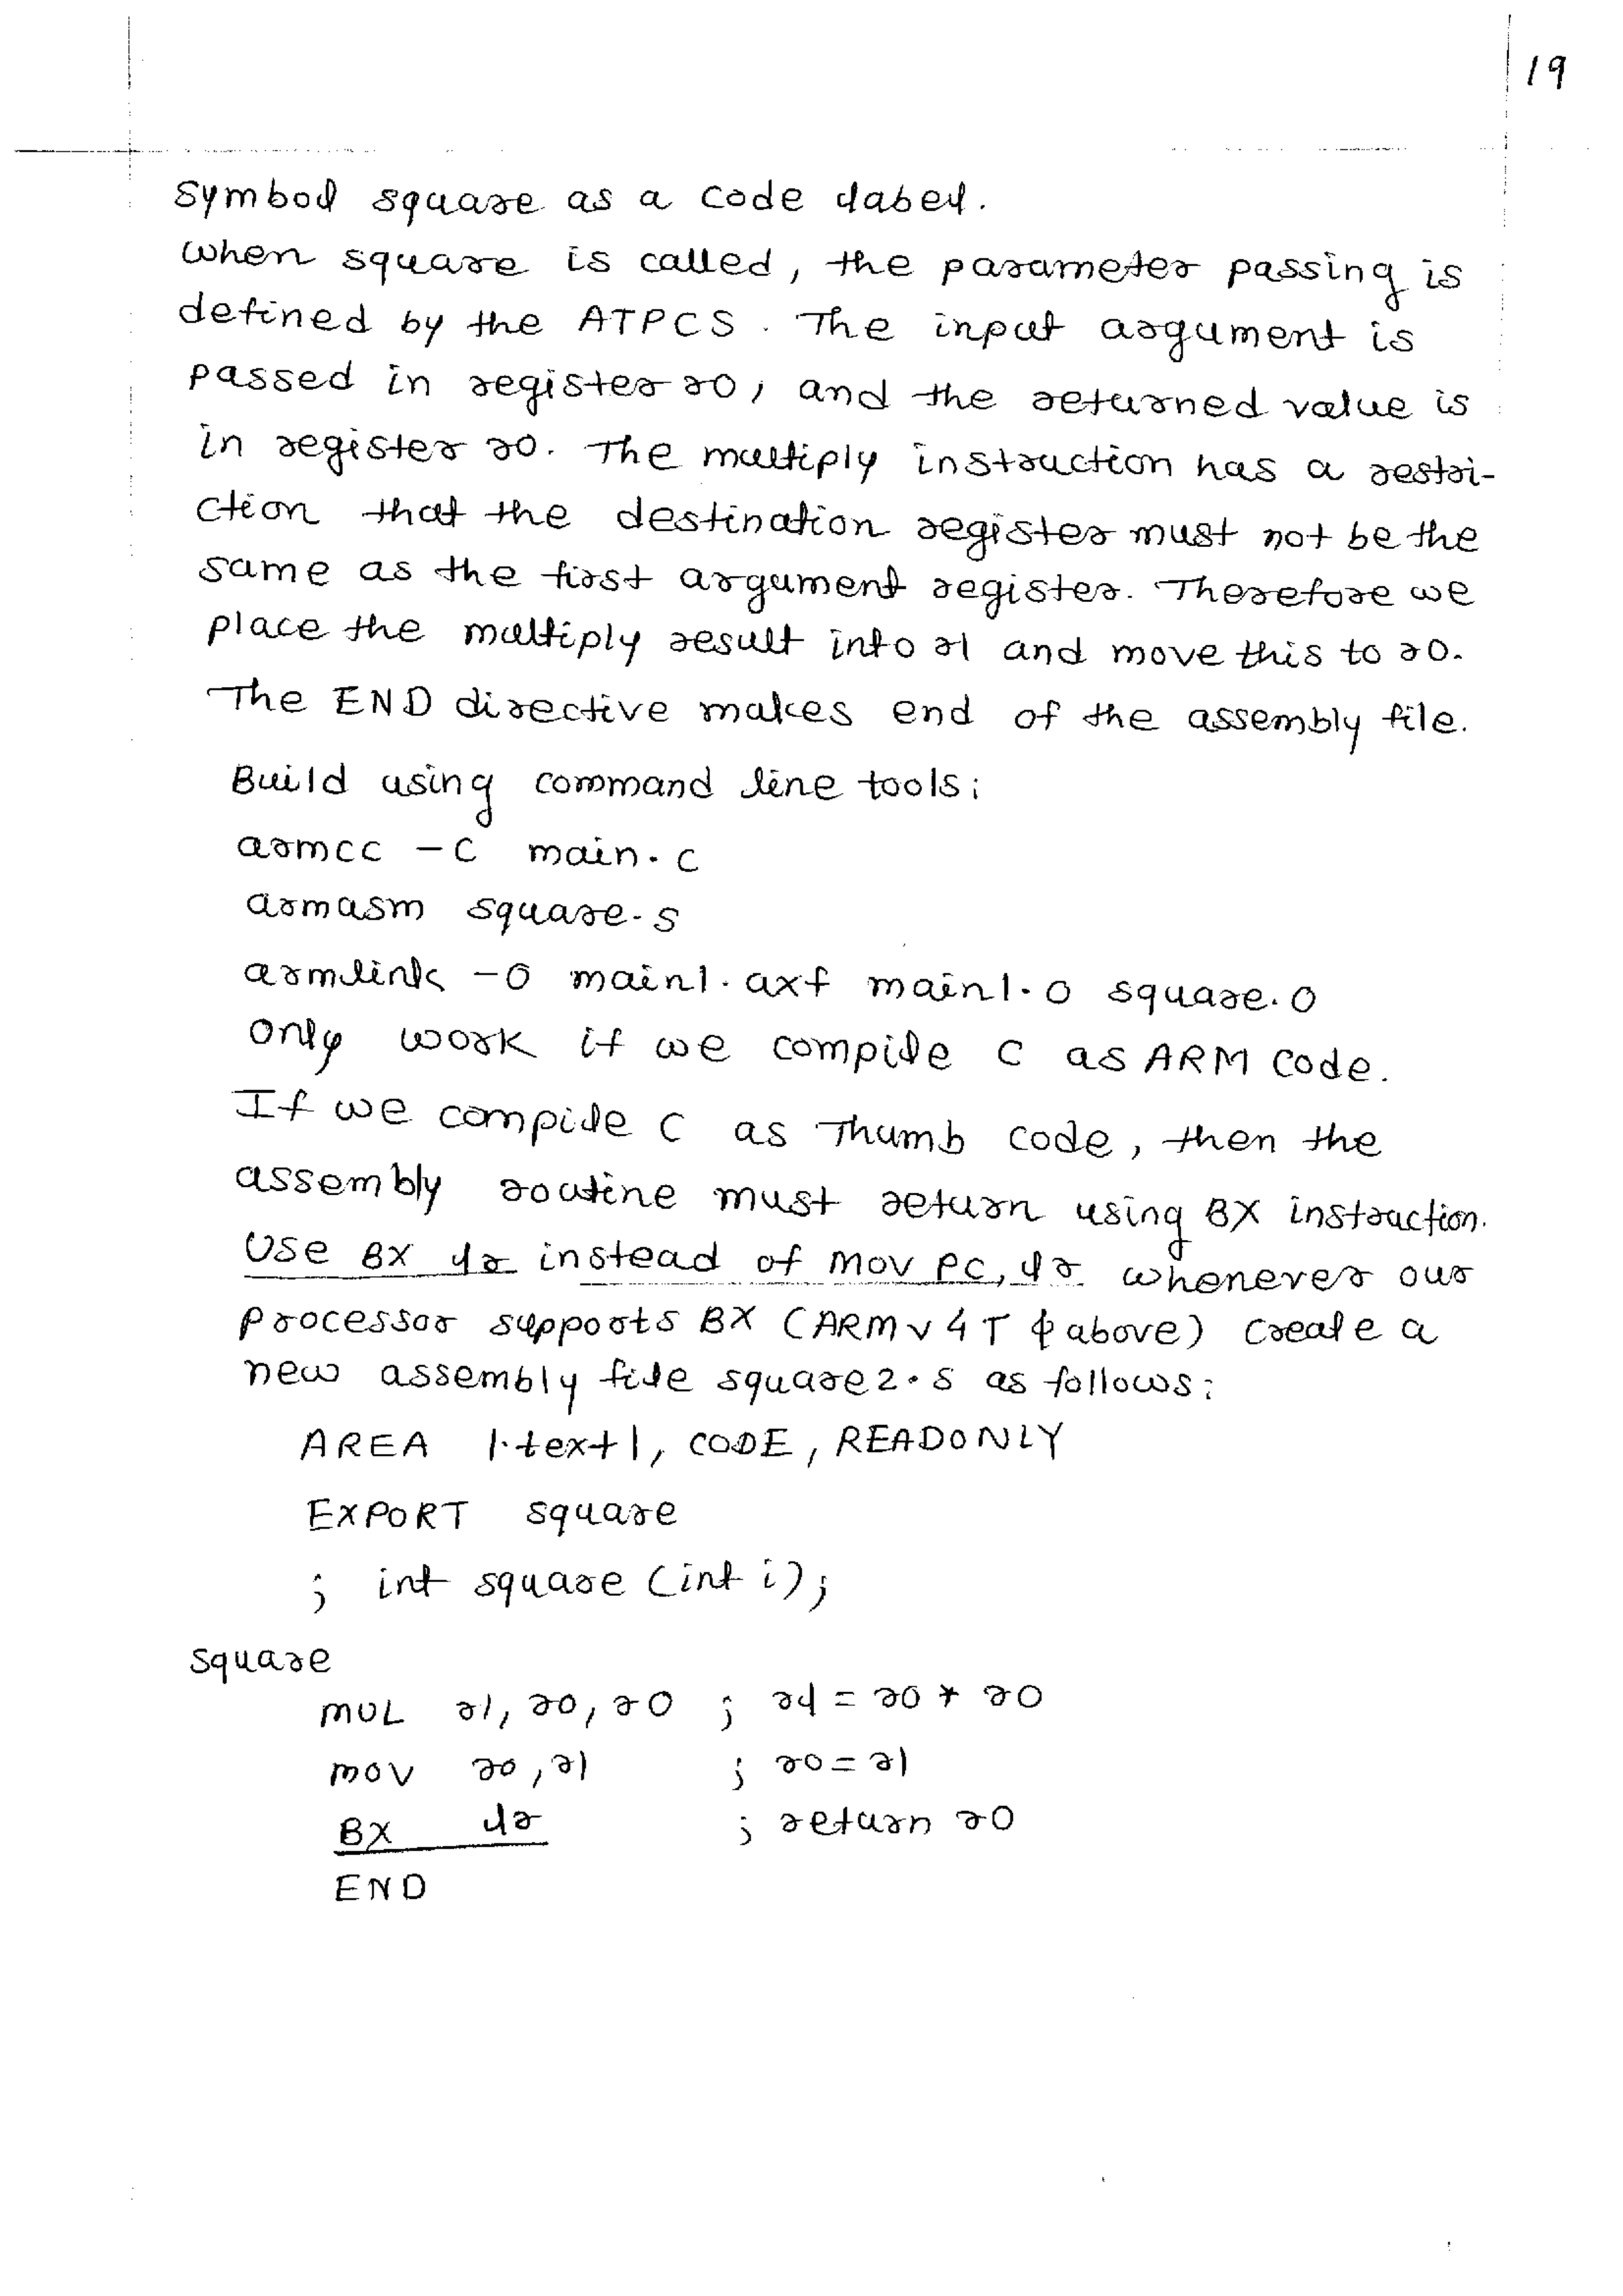 19
symbol square as a code label.
when square is called, the parameter passing is
defined by the ATPCS. The input argument is
passed in register r0, and the returned value is
in register r0. The multiply instruction has a restri-
ction that the destination register must not be the
same as the first argument register. Therefore we
place the multiply result into r1 and move this to r0.
The END directive makes end of the assembly file.
Build using command line tools:
armcc -c main.c
armasm square.s
armlink -o main1.axf main1.o square.o
only work if we compile C as ARM code.
If we compile C as Thumb code, then the
assembly routine must return using BX instruction.
Use BX lr instead of MOV PC, lr whenever our
processor supports BX (ARMv4T & above) create a
new assembly file square2.s as follows:
AREA |.text|, CODE, READONLY
EXPORT square
; int square (int i);
square
MUL r1, r0, r0 ; r1 = r0 * r0
MOV r0, r1 ; r0 = r1
BX lr ; return r0
END